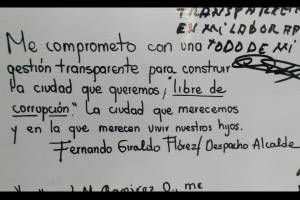 TRANSPARE
EN MI LABOR
TODO DE MI
Me comprometo con una
gestión transparente para construir
la ciudad que queremos, "libre de
corrupción." La ciudad que merecemos
y en la que merecen vivir nuestros hijos.
Fernando Giraldo Flórez/ Despacho Alcalde
me